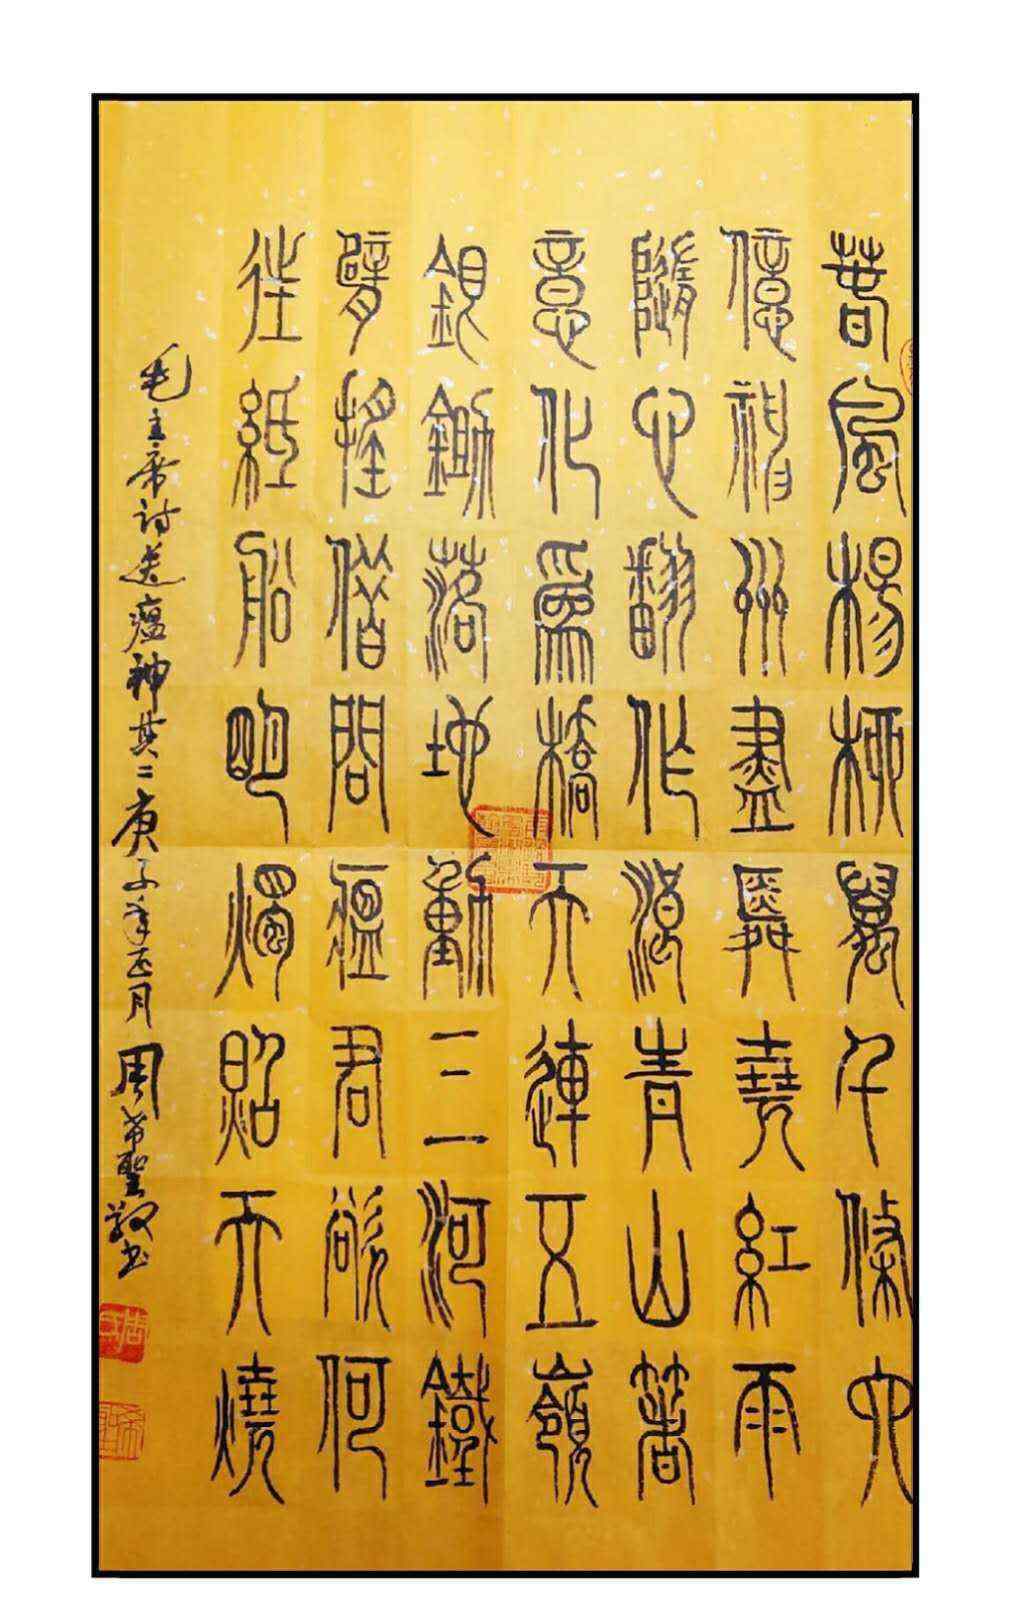 春風楊柳萬千條六
億神州盡舜堯紅雨
隨心翻作浪青山著
意化為橋天連五嶺
銀鋤落地動三河鐵
臂搖借問瘟君欲何
往紙船明燭照天燒
毛主席詩送瘟神其二庚子年正月周希聖敬書